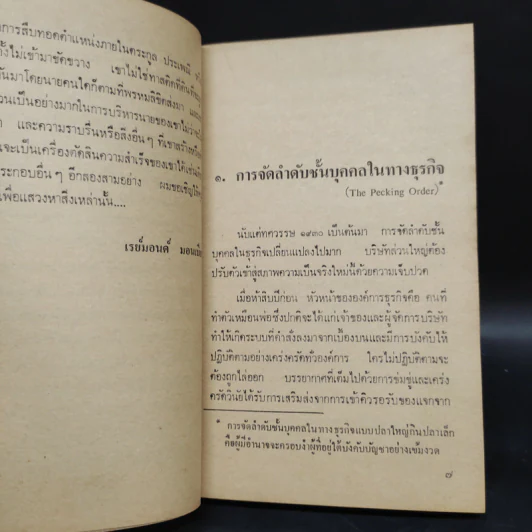 การสืบทอดตำแหน่งภายในตระกูล ประเพณี
ไม่เข้ามาขัดขวาง เขาไม่ใช่ทาสติดที่ดิน
มาโดยนายคนใดก็ตามที่พรหมลิขิตส่งมา
เป็นอย่างมากในการบริหารนายของเขาไม่ว่า
และความราบรื่นหรือสิ่งอื่นๆ ที่เขาสร้าง
จะเป็นเครื่องตัดสินความสำเร็จของเขาได้
ประกอบอื่นๆ อีกสองสามอย่าง ผมขอเชิญให้
เพื่อแสวงหาสิ่งเหล่านั้น....
เรย์มอนด์
๑. การจัดลำดับชั้นบุคคลในทางธุรกิจ
(The Pecking Order)*
นับแต่ทศวรรษ ๑๙๓๐ เป็นต้นมา การจัดลำดับชั้น
บุคคลในธุรกิจเปลี่ยนแปลงไปมาก บริษัทส่วนใหญ่ต้อง
ปรับตัวเข้าสู่สภาพความเป็นจริงใหม่นี้ด้วยความเจ็บปวด
เมื่อห้าสิบปีก่อน หัวหน้าขององค์การธุรกิจคือ คนที่
ทำตัวเหมือนพ่อซึ่งปกติจะได้แก่เจ้าของและผู้จัดการบริษัท
ทำให้เกิดระบบที่คำสั่งลงมาจากเบื้องบนและมีการบังคับให้
ปฏิบัติตามอย่างเคร่งครัดทั่วองค์การ ใครไม่ปฏิบัติตามจะ
ต้องถูกไล่ออก บรรยากาศที่เต็มไปด้วยการข่มขู่และเคร่ง
ครัดวินัยได้รับการเสริมส่งจากการเข้าคิวรอรับของแจกจาก
* การจัดลำดับชั้นบุคคลในทางธุรกิจแบบปลาใหญ่กินปลาเล็ก
คือผู้มีอำนาจจะครอบงำผู้ที่อยู่ใต้บังคับบัญชาอย่างเข้มงวด
๗